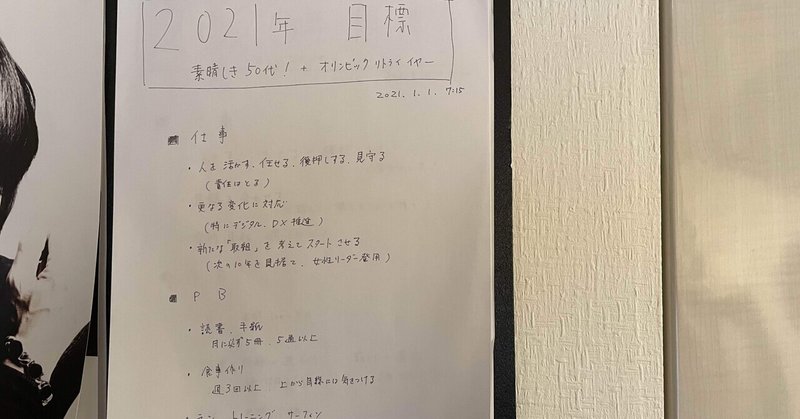 2021年 目標
素晴しき50代! + オリンピックリトライイヤー
2021. 1. 1. 7:15
■ 仕事
・人を活かす、任せる、後押しする、見守る
(責任はとる)
・更なる変化に対応
(特にデジタル、DX推進)
・新たな「取組」を考えてスタートさせる
(次の10年を見据えて、女性リーダー登用)
■ P B
・読書、手紙
月に必ず5冊、5通以上
・食事作り
週3回以上 上から目線には気をつける
・ラン トレーニング サーフィン